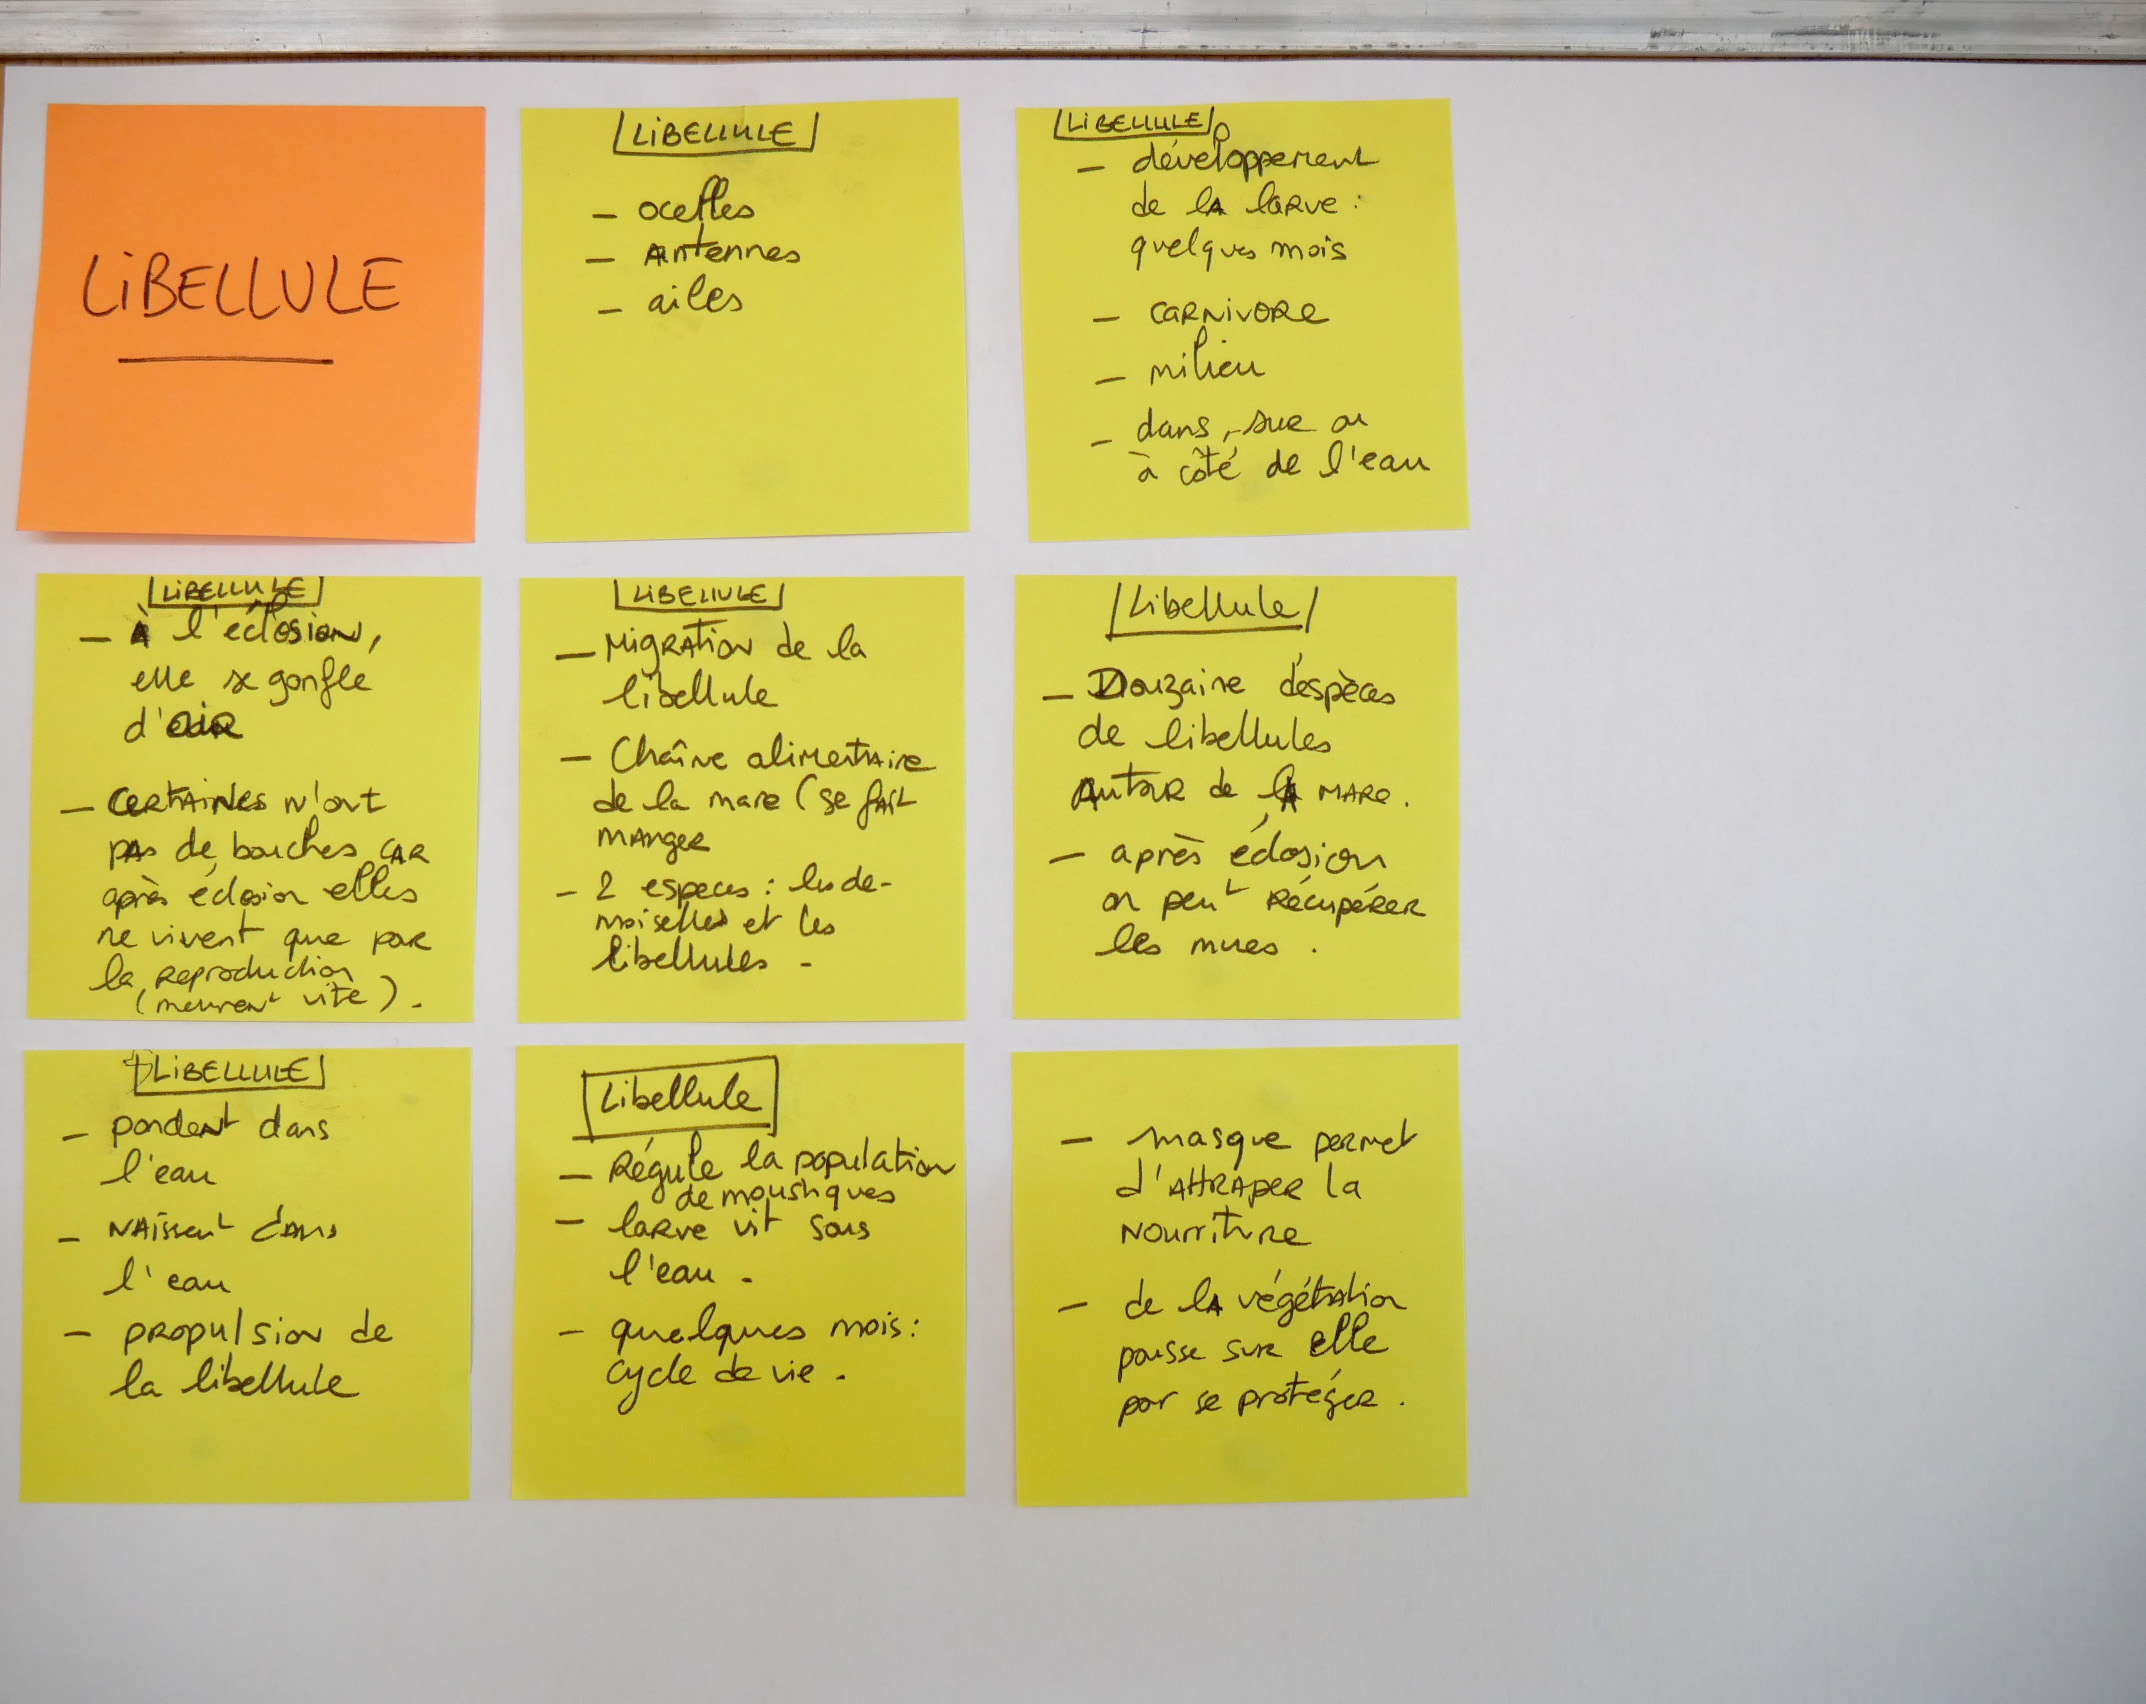 LiBELLULE
LiBELLULE
- ocelles
- Antennes
- ailes
LiBELLULE
- développement
de la larve :
quelques mois
- carnivore
- milieu
- dans, sur ou
à côté de l'eau
LiBELLULE
- À l'éclosion,
elle se gonfle
d'air
- Certaines n'ont
pas de bouches car
après éclosion elles
ne vivent que par
la reproduction
(meurent vite).
LiBELLULE
- Migration de la
libellule
- Chaîne alimentaire
de la mare (se fait
manger
- 2 especes : les de-
moiselles et les
libellules -
Libellule
- Douzaine d'espèces
de libellules
Autour de la mare.
- après éclosion
on peut récupérer
les mues .
LiBELLULE
- pondent dans
l'eau
- naissent dans
l'eau
- propulsion de
la libellule
Libellule
- Régule la population
de moustiques
- larve vit sous
l'eau .
- quelques mois :
cycle de vie .
- masque permet
d'attraper la
nourriture
- de la végétation
pousse sur elle
por se protéger .